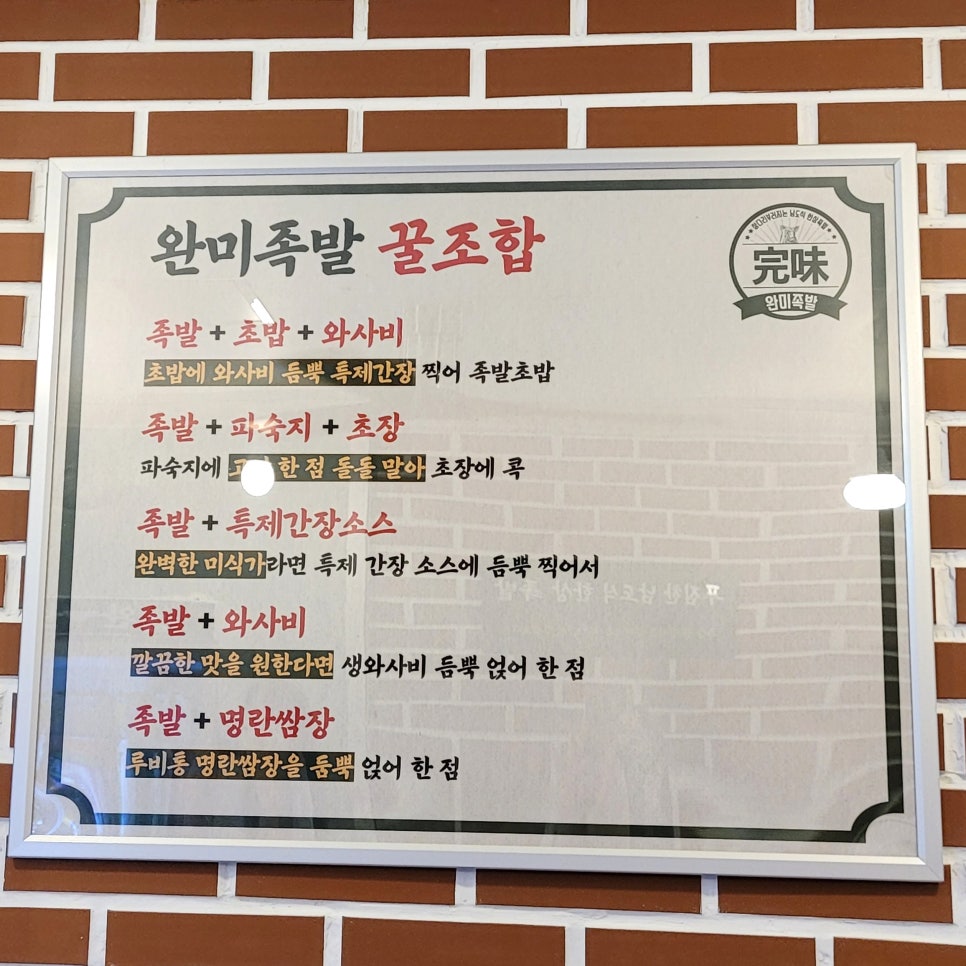 완미족발 꿀조합
완味
완미족발
족발 + 초밥 + 와사비
초밥에 와사비 듬뿍 특제간장 찍어 족발초밥
족발 + 파숙지 + 초장
파숙지에 한 점 돌돌 말아 초장에 콕
족발 + 특제간장소스
완벽한 미식가라면 특제 간장 소스에 듬뿍 찍어서
족발 + 와사비
깔끔한 맛을 원한다면 생와사비 듬뿍 얹어 한 점
족발 + 명란쌈장
루비통 명란쌈장을 듬뿍 얹어 한 점